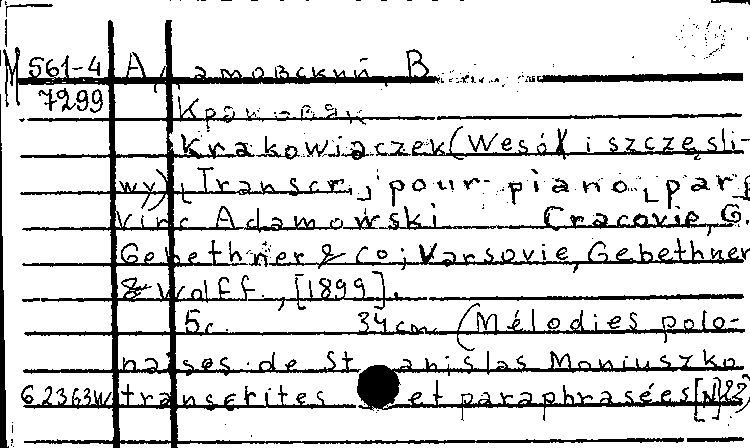 М 561-4 Адамовский, В.
7299
Краковяк
Krakowiaczek (Wesół i szczęsli-
wy). [Transcr.] pour piano par
Vinc Adamowski Cracovie, G.
Gebethner & Co; Varsovie, Gebethner
& Wolff, [1899].
5 c. 34 cm (Mélodies polo-
naises de Stanislas Moniuszko
62363w transcrites et paraphrasées [N]